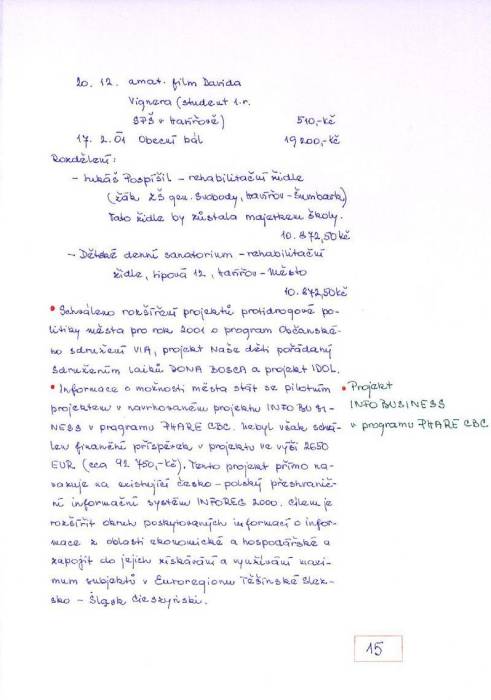 20. 12. amat. film Davida
Vignera (student 1. r.
SPŠ v Havířově) 510,-Kč
17. 2. 01 Obecní bál 19 200,-Kč
Rozdělení:
- Lukáš Pospíšil - rehabilitační židle
(žák ZŠ gen. Svobody, Havířov - Šumbark)
Tato židle by zůstala majetkem školy.
10.872,50 Kč
- Dětské denní sanatorium - rehabilitační
židle, Lipová 12, Havířov - Město
10.872,50 Kč
• Schváleno rozšíření projektů protidrogové po-
litiky města pro rok 2001 o program Občanské-
ho sdružení VIA, projekt Naše děti pořádaný
Sdružením laiků DONA BOSCA a projekt IDOL.
• Informace o možnosti města stát se pilotním
projektem v navrhovaném projektu INFO BUSI-
NESS v programu PHARE CBC. Nebyl však schvá-
len finanční příspěvek v projektu ve výši 2650
EUR (cca 92 750,-Kč). Tento projekt přímo na-
vazuje na existující česko-polský přeshranič-
ní informační systém INFOREG 2000. Cílem je
rozšířit okruh poskytovaných informací o infor-
mace z oblasti ekonomické a hospodářské a
zapojit do jejich získávání a využívání maxi-
mum subjektů v Euroregionu Těšínské Slez-
sko - Śląsk Cieszyński.
• Projekt
INFO BUSINESS
v programu PHARE CBC
15